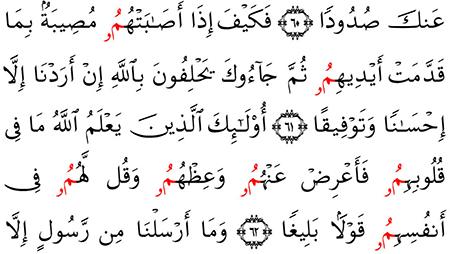 عَنكَ صُدُودًا ۝٦٠ فَكَيْفَ إِذَا أَصَٰبَتْهُمُۥ مُصِيبَةُۢ بِمَا
قَدَّمَتْ أَيْدِيهِمُۥ ثُمَّ جَآءُوكَ يَحْلِفُونَ بِٱللَّهِ إِنْ أَرَدْنَا إِلَّا
إِحْسَٰنًا وَتَوْفِيقًا ۝٦١ أُوْلَٰٓئِكَ ٱلَّذِينَ يَعْلَمُ ٱللَّهُ مَا فِى
قُلُوبِهِمُۥ فَأَعْرِضْ عَنْهُمُۥ وَعِظْهُمُۥ وَقُل لَّهُمُۥ فِى
أَنفُسِهِمُۥ قَوْلَۢا بَلِيغًا ۝٦٢ وَمَا أَرْسَلْنَا مِن رَّسُولٍ إِلَّا